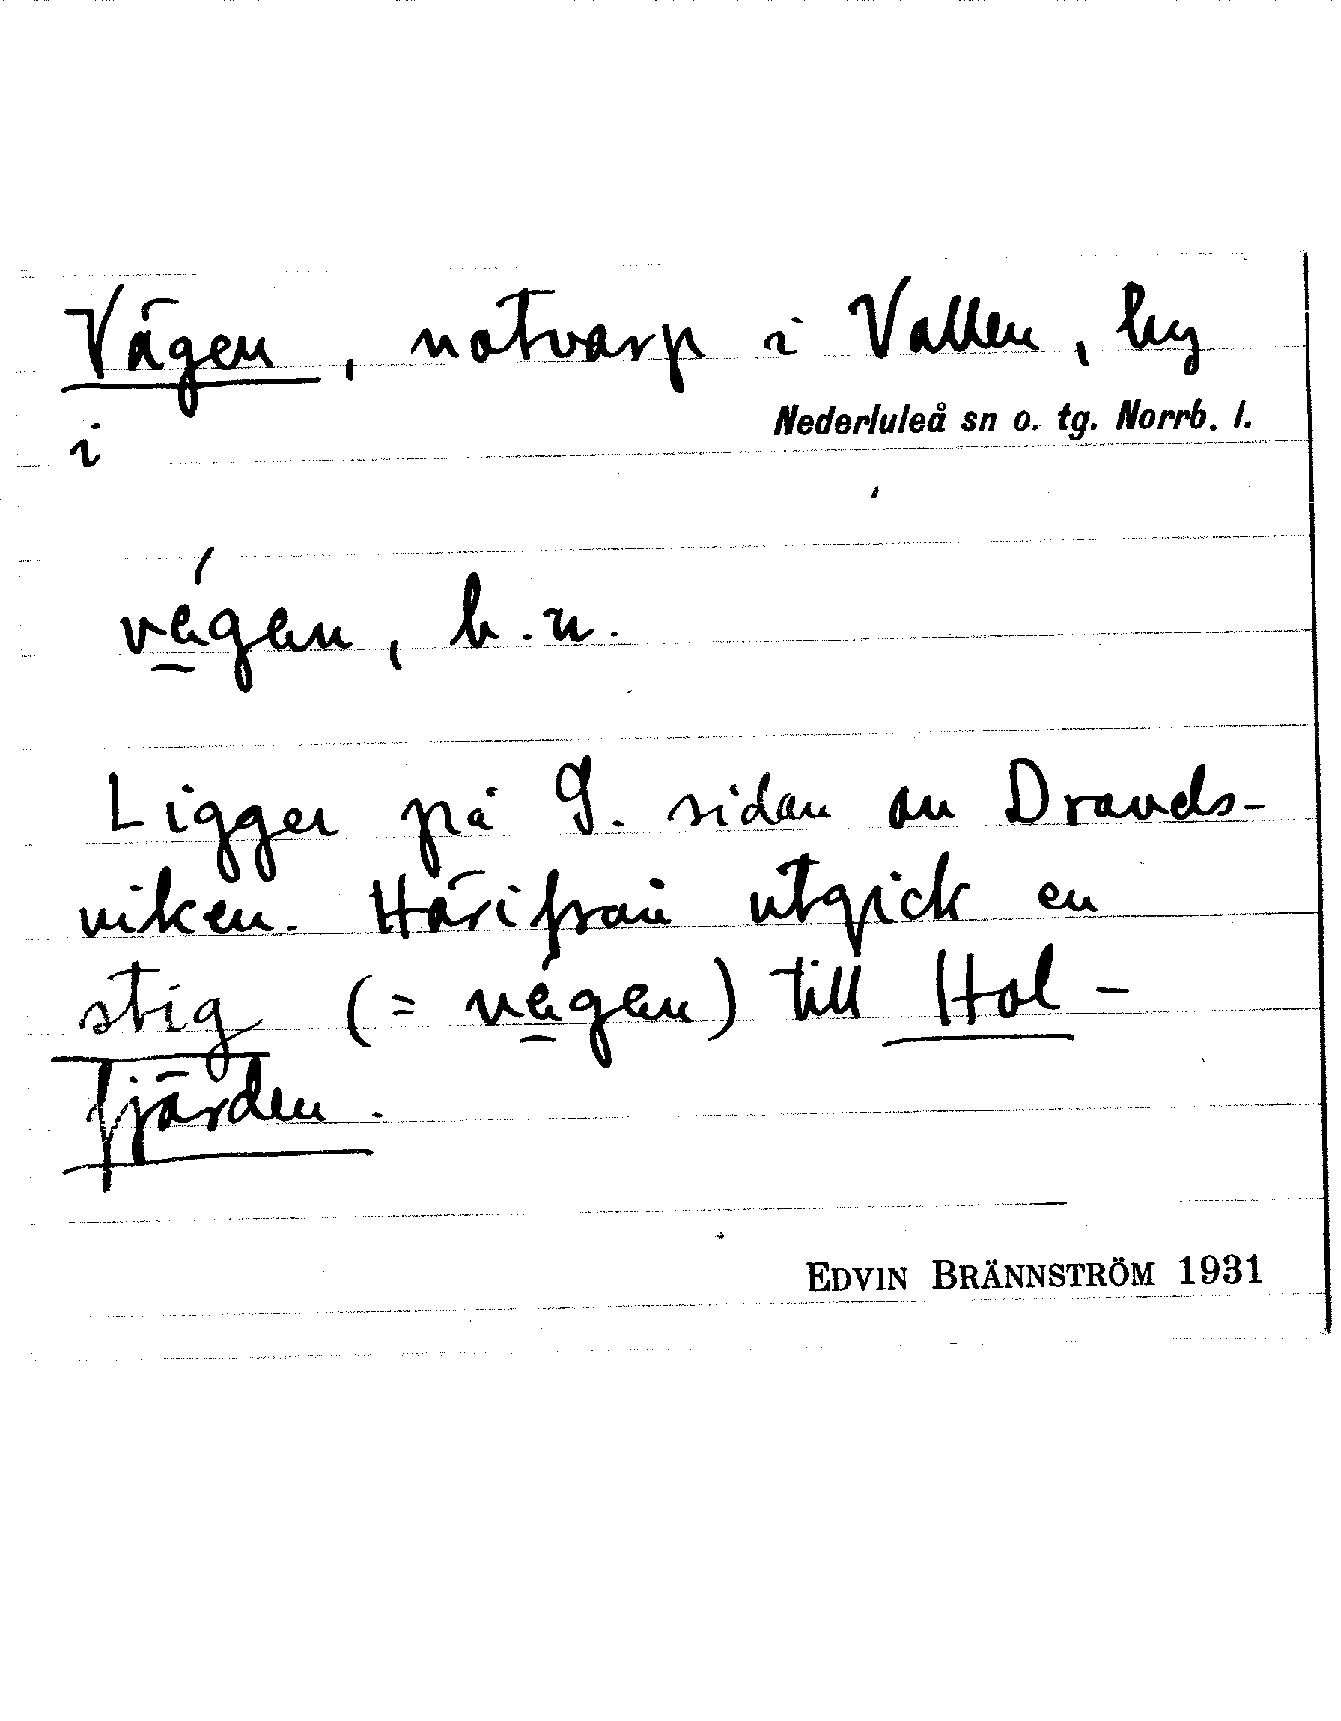 Vägen, notvarp i Vallen, by
i Nederluleå sn o. tg. Norrb. l.
végen, b.n.
Ligger på S. sidan av Dravels-
viken. Härifrån utgick en
stig (= végen) till Hol-
fjärden.
EDVIN BRÄNNSTRÖM 1931